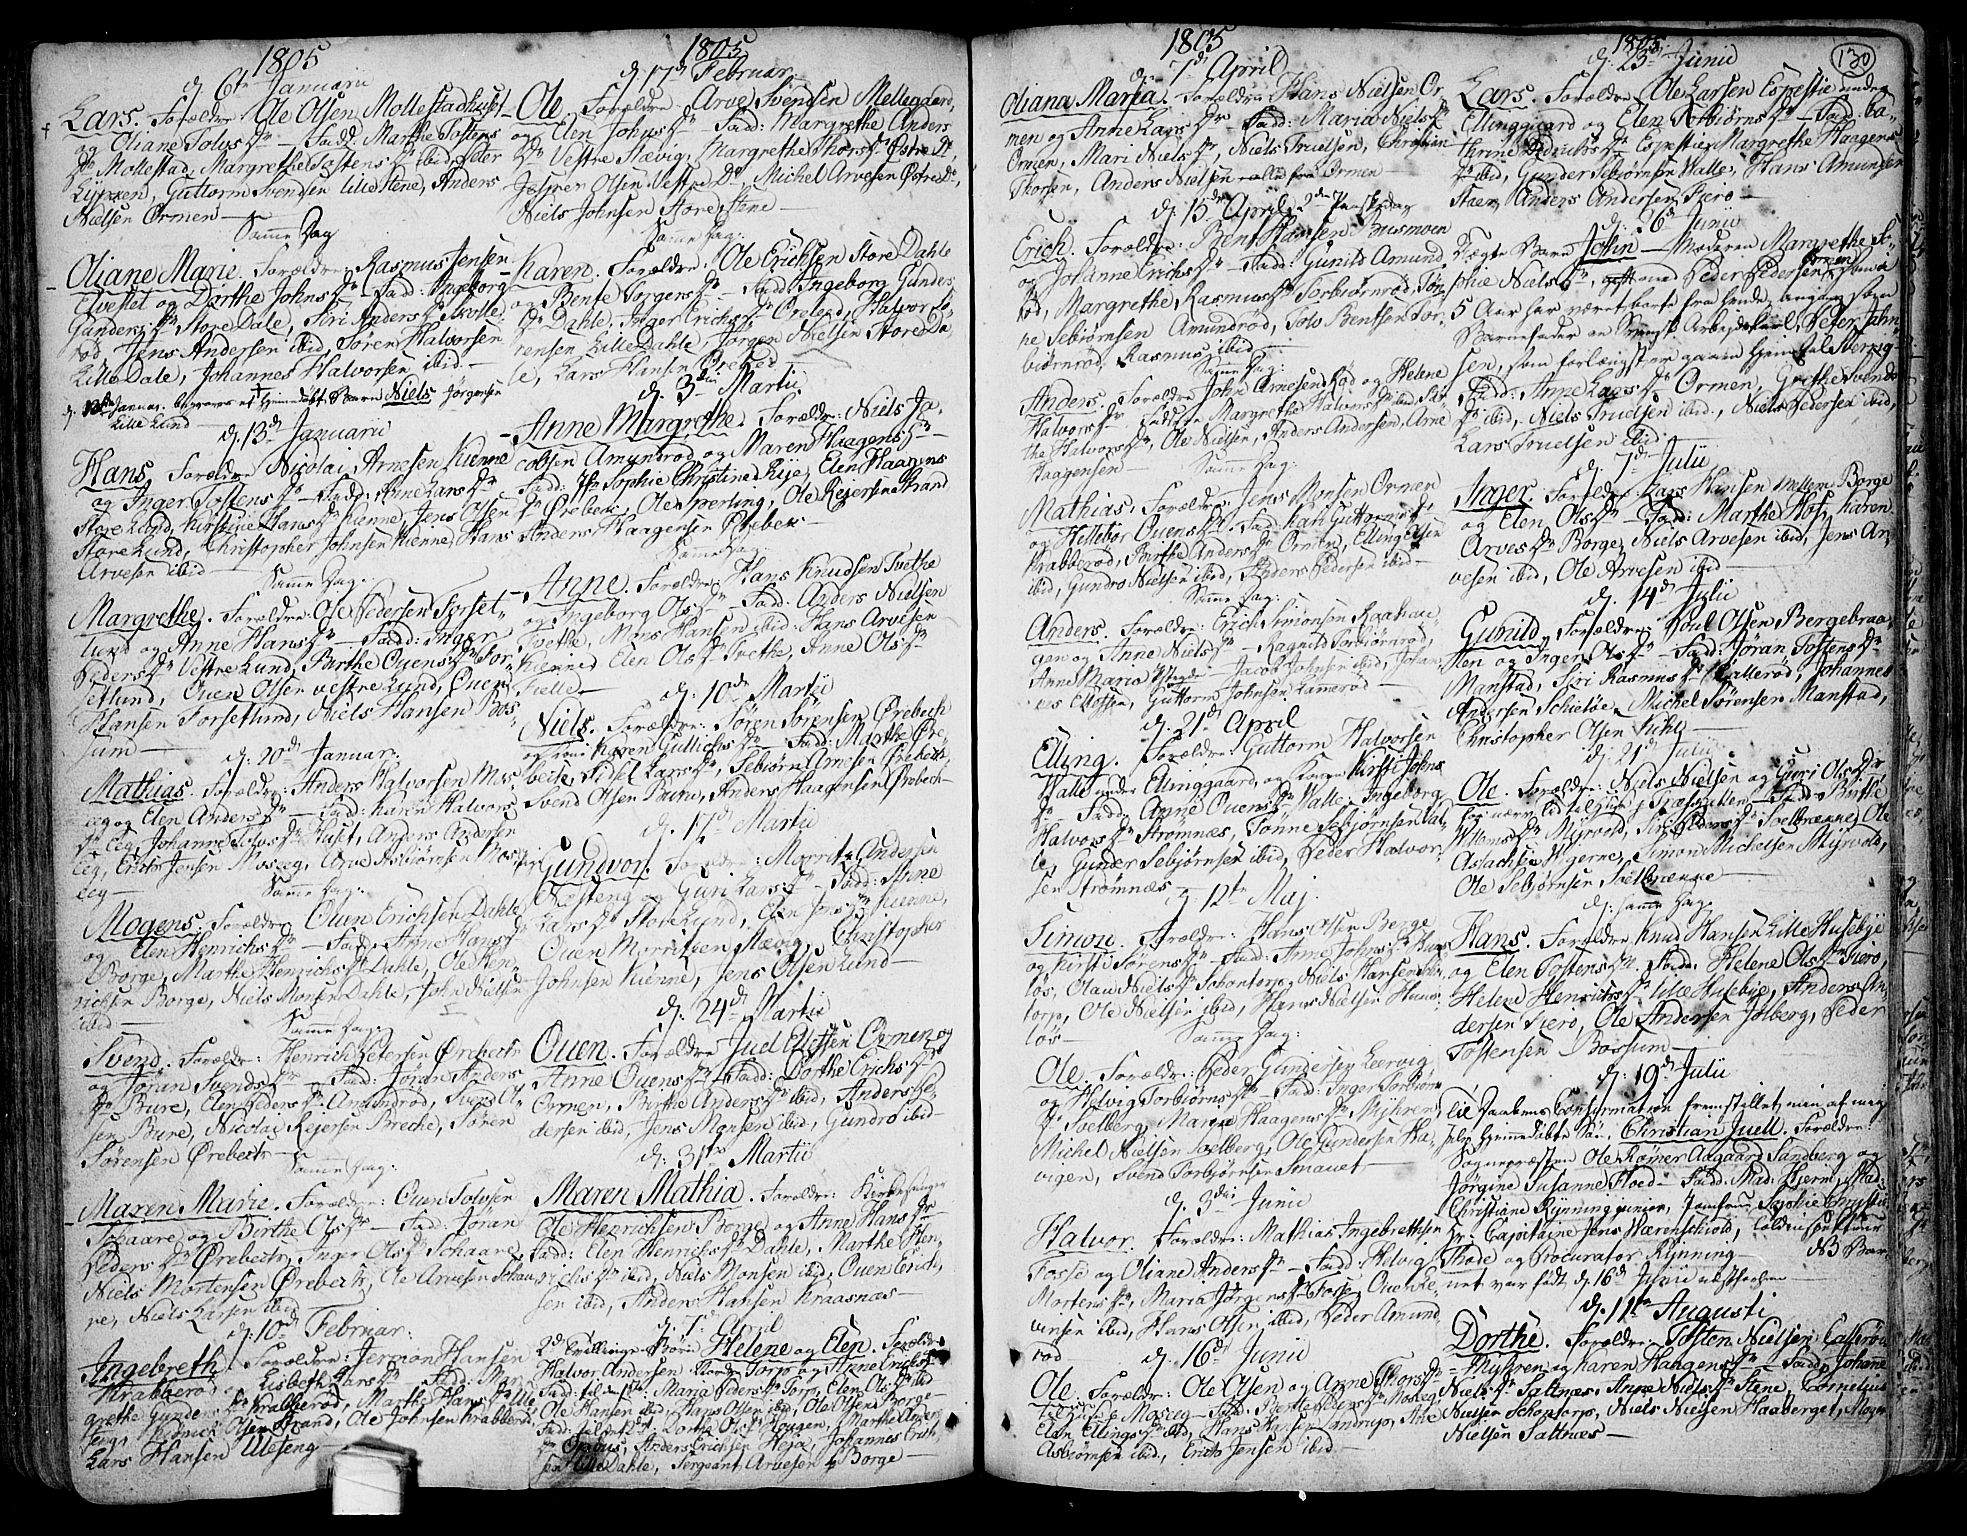 1805
d. 6te Januarii
Lars. Forældre Ole Olsen Mollestadhuset
og Oliane Tolvs Dr — Fadd: Marthe Tostens
Dr Mollestad, Margrethe Tostens Dr ibid, Peder
Guttorm Svendsen Lille Stene, Anders
Nielsen Ormen —
Samme Dag
Oliane Marie. Forældre: Rasmus Jensen
Elvestet og Dorthe Johns Dr — Fadd: Ingeborg
Gunders Dr Store Dale, Siri Anders Dr Molle
rød, Jens Andersen ibid, Søren Halvorsen
Lille Dale, Johannes Halvorsen ibid. —
Januar. Hjemdøbt Barn Niels Jørgensen
Lille Lund
d. 13de Januarii
Hans. Forældre Nicolai Arnesen Kienne
og Inger Tostens Dr — Fadd: Anne Lars Dr
Store Lund, Kirstine Hans Dr Kienne, Jens Olsen
Store Lund, Christopher Johnsen Kienne, Hans
Arvesen ibid —
Samme Dag.
Margrethe. Forældre: Ole Pedersen Forset-
lund og Anne Hans Dr — Fadd: Inger
Peders Dr Vestre Lund, Birthe Ouens Dr For-
setlund, Ouen Olsen vestre Lund, Ouen
Hansen Forsetlund, Niels Hansen Bos-
sum —
d. 20de Januar.
Mathias. Forældre: Anders Halvorsen Mos-
eeg og Elen Anders Dr — Fadd: Karen Halvors
Dr Eeg, Johanne Tolvs Dr Huset, Anders Andersen
Eeg, Erich Jensen Moseeg, Arve Asbiörnsen Mos-
eeg —
Samme Dag:
Mogens. Forældre: Ouen Erichsen Dahle
og Elen Henrichs Dr — Fadd: Anne Hans Dr
Borge, Marthe Henrichs Dr Dahle, Ole Hen-
richsen Borge, Niels Monsen Dahle, John Nielsen
ibid —
Samme Dag:
Svend. Forældre: Henrich Petersen Ørebech
og Jöran Svends Dr — Fadd: Jöran Anders
Dr Bure, Elen Peders Dr Amundrød, Svend Ol-
sen Bure, Nicolai Rejersen Breche, Søren
Sørensen Ørebech —
Samme Dag:
Maren Marie. Forældre: Ouen Tolvsen
og Birthe Ols Dr — Fadd: Jöran
Peders Dr Ørebech, Inger Ols Dr Schaare,
Niels Mortensen Ørebech, Ole Arvesen Schaa-
re, Niels Larsen ibid
d. 10de Februar:
Ingebreth. Forældre: Jermon Hansen
Krabberød og Lisbeth Lars Dr — Fadd: Mar-
grethe Gunders Dr Krabberød, Marthe Hans Dr Ule
seng, Olsen Strand, Ole Johnsen Krabberød,
Lars Hansen Uleseng —
1805
d. 17de Februar
Ole. Forældre Arve Svendsen Mellegaard
og Elen Johns Dr — Fadd: Margrethe Anders
Dr Vestre Mævig, Margrethe Thors Dr Østre Do,
Jesper Olsen Vestre Do, Michel Arvesen Østre Do,
Niels Johnsen Store Stene —
Samme Dag:
Karen. Forældre: Ole Erichsen Store Dahle
og Bente Jörgens Dr — Fadd Ingeborg Gunders
Dr Dahle, Inger Erichs Dr Oreled, Halvor Sö-
rensen Lille Dahle, Jørgen Nielsen Store Da-
le, Lars Hansen Oreled
d. 3die Martii
Anne Margrethe. Forældre: Niels Ja-
cobsen Amundrød og Maren Haagens Dr
Fadd: Sophie Christine Leje, Elen Haagens
Dr Ørebech, Ole Sperling, Ole Rejersen Strand
Anders Haagensen Ørebech —
Samme Dag.
Anne. Forældre: Hans Knudsen Tvethe
og Ingeborg Ols Dr — Fadd: Anders Nielsen
Tvethe, Mons Hansen ibid, Hans Arvesen
Kienne, Elen Ols Dr Tvethe, Anne Ols Dr
Tvethe —
d. 10de Martii
Niels. Forældre: Søren Sørensen Ørebech
og Karen Gullichs Dr — Fadd: Marthe Øre-
bech, Sidsel Lars Dr, Tebiörn Arnesen Ørebech,
Svend Olsen Bure, Anders Haagensen Ørebech —
d. 17de Martii
Gunvor. Forældre: Morritz Andersen
Næsteng og Guri Lars Dr — Fadd: Anne
Lars Dr Store Lund, Elen Jens Dr Kienne,
Ouen Morritzen Mævig, Christopher
Johnsen Kienne, Jens Olsen Lund —
d. 24de Martii
Ouen. Forældre Juel Ellefsen Ormen og
Anne Ouens Dr — Fadd: Dorthe Erichs Dr
Ormen, Birthe Anders Dr ibid, Anders Pe-
dersen ibid, Jens Monsen ibid, Gundro ibid —
d. 31te Martii
Maren Mathia. Forældre: Kirkesanger
Ole Henrichsen Borge og Anne Hans Dr
Fadd: Elen Henrichs Dr Dahle, Marthe Hen-
richs Dr ibid, Niels Monsen ibid, Ouen Erich-
sen ibid, Anders Hansen Kraasnæs —
d. 7de April
2de Tvillinge Börn Helene og Elen. Forældre
Halvor Andersen Torp og Anne Erichs Dr
Fadd: til den 1ste: Maria Peders Dr Torp, Elen Ols Dr ibid
Ole Hansen ibid, Hans Olsen ibid, Ole Olsen Borge —
Fadd: til den 2den: Dorthe Ols Dr Haugen, Marthe Anders
Dr, Anders Erichsen Heja, Johannes Erich-
sen Lille Dahle, Sergeant Arvesen Borge —
1805
d. 7de April
Oliana Maria. Forældre Hans Nielsen Or-
men og Anne Lars Dr — Fadd: Maria Niels Dr
Ormen, Mari Niels Dr, Niels Truelsen, Christian
Thorsen, Anders Nielsen — alle fra Ormen —
d. 15de April 2den Paaskedag
Erich. Forældre: Bent Hansen Busmoen
og Johanne Erichs Dr — Fadd: Gunild Amund-
rød, Margrethe Rasmus Dr Torbiørnrød, Tön-
ne Sebiørnsen Amundrød, Tolv Bentsen Tor-
biørnrød, Rasmus ibid —
Samme Dag:
Anders. Forældre John Arnesen Rød og Helene
Halvors Dr — Fadd: Margrethe Halvors Dr ibid, Bir-
the Halvors Dr, Ole Nielsen, Anders Andersen, Arne
Haagensen —
Samme Dag:
Mathias. Forældre: Jens Monsen Ormen
og Hillebor Ouens Dr — Fadd: Kari Guttorms Dr
Krabberød, Birthe Anders Dr Ormen, Elling Olsen
ibid, Gundro Nielsen ibid, Peders Pedersen ibid —
Samme Dag:
Anders. Forældre: Erich Simonsen Raahau-
gen og Anne Niels Dr — Ragnild Torbiørnrød,
Anne Maria Østre, Jacob Johnsen ibid, Johan-
nes Ellefsen, Guttorm Johnsen Kamerød —
d. 21de April
Elling. Forældre: Guttorm Halvorsen
Walle under Ellinggaard, og Karen Kirsti Johns
Dr — Fadd: Anne Ouens Dr Walle, Ingeborg
Halvors Dr Strømnæs, Tønne Sebjørnsen Val-
le, Gunder Sebjørnsen ibid, Peder Halvor-
sen Strømnæs —
d. 12te Maj.
Simon. Forældre: Hans Olsen Berge
og Kirsti Sørens Dr — Fadd: Anne Johns Dr Huus-
løs, Olau Niels Dr Sobantorp, Niels Hansen Schan-
torp, Ole Nielsen ibid, Hans Nielsen Huus-
løs —
Samme Dag:
Ole. Forældre: Peder Gundersen Leervig
og Helvig Torbiørns Dr — Fadd: Inger Torbiörns
Dr Soelberg, Maren Haagens Dr Myhren,
Michel Nielsen Soelberg, Ole Gundersen Ha-
vigen, Svend Torbjørnsen Smauet —
d. 3die Junii
Halvor. Forældre: Mathias Ingebrethsen
Fosse og Oliane Anders Dr — Fadd: Helvig
Mortens Dr, Maria Jørgens Dr Fosse, Ouen Hal-
vorsen ibid, Hans Olsen ibid, Peder Amund-
rød —
d. 16de Junii
Ole. Forældre: Ole Olsen og Anne Thors Dr
Moseeg — Fadd: Berthe Peders Dr Moseeg,
Elen Ellings Dr ibid, Hans Hansen Sandtorp, Arve
Asbiörnsen ibid, Erich Jensen ibid —
1805
130
d. 23de Junii
Lars. Forældre: Ole Larsen Espestie under
Ellinggaard og Elen Torbiörns Dr — Fadd: Ca-
thrine Didrichs Dr Espestie, Margrethe Haagens
Dr ibid, Gunder Sebjørnsen Walle, Hans Amundsen
Staen, Anders Andersen Fierø —
d. 26de Junii
Uægte Barn John — Moderen Margrethe So-
phie Niels Dr, gift med Peder Pedersen Ormen, som i
5 Aar har været borte fra hende, angav som
Barnefader en Svensk Arbeidskarl, Peder John-
sen, som forlængst er gaaen hjem til Sverrig
Fadd: Anne Lars Dr Ormen, Grethe Svends
Dr ibid, Niels Truelsen ibid, Niels Pedersen ibid,
Lars Truelsen ibid.
d. 7de Julii
Inger. Forældre: Lars Hansen Mellem Borge
og Elen Ols Dr — Fadd: Marthe Hofs, Karen
Arves Dr Borge, Niels Arvesen ibid, Jens Ar-
vesen ibid, Ole Arvesen ibid —
d. 14de Julii
Gunild. Forældre: Poul Olsen Bergebraa-
ten og Inger Ols Dr — Fadd: Jøran Tostens Dr
Manstad, Siri Rasmus Dr Callerød, Johannes
Andersen Schieløe, Michel Sørensen Manstad,
Christopher Olsen Kihle —
d. 21de Julii
Ole. Forældre: Niels Nielsen og Guri Ols Dr
for nærv. Tid tilhuus i Græsgallen — Fadd: Birthe
Villems Dr Myrvold, Siri Peders Dr Soelbrænne, Ole
Aslachsen Higerne, Simon Michelsen Myrvold,
Ole Sebjørnsen Soelbrænne
d. samme Dag.
Hans. Forældre: Knud Hansen Lille Husebye
og Elen Tostens Dr. Fadd: Helene Ols Dr Fierø,
Helene Henrichs Dr Lille Husebye, Anders An-
dersen Fierø, Ole Andersen Jolberg, Peder
Tostensen Bossum —
d. 19de Julii
Til Daabens Confirmation fremstillet min af mig
selv hjemmedøbte Sön, Christian Juell. Forældre:
Sognepræsten Ole Rømer Aagaard Sandberg og
Jørgine Susanne Floed — Fadd: Mad. Bjerm, Mad:
Christiane Rynning, Jomfrue Sophie Christine
Hr. Capitaine Jens Wærenschiold, Toldinspecteur
Thode og Procurator Rynning — NB Bar-
net var født d. 16de Junii næstforhen —
d. 11te Augusti
Dorthe. Forældre: Tosten Nielsen Callerød
Myhren og Karen Haagens Dr — Fadd: Johane
Niels Dr Saltnæs, Anne Niels Dr Stene, Cornelius
Nielsen Schantorp, Niels Nielsen Haaberget, Mogn
Nielsen Saltnæs —